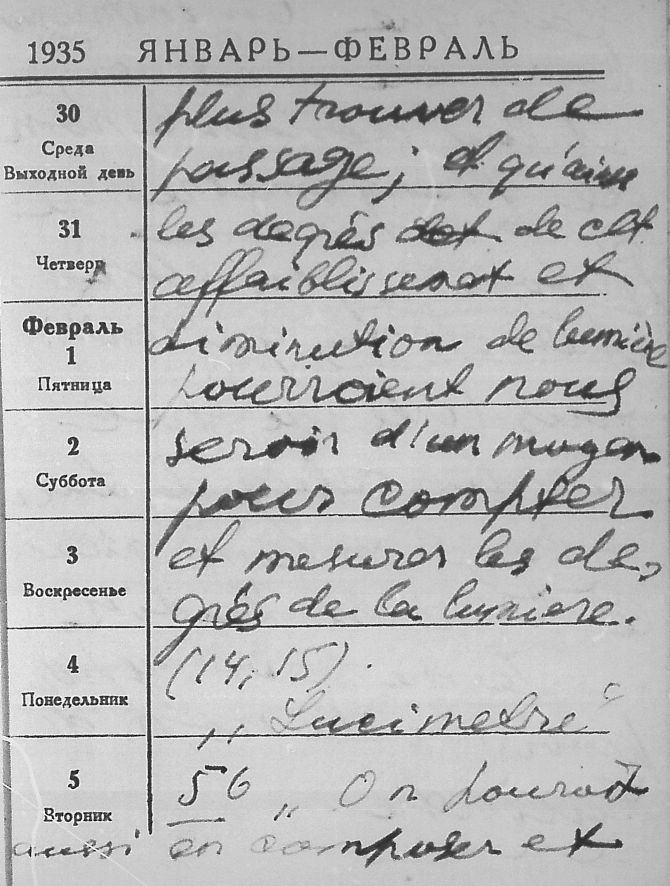 1935 ЯНВАРЬ—ФЕВРАЛЬ
30
Среда
Выходной день
plus trouver de
passage; et qu'ainsi
31
Четверг
les degrés de cet
affaiblissement et
Февраль
1
Пятница
diminution de lumière
pourroient nous
2
Суббота
servir d'un moyen
pour compter
3
Воскресенье
et mesurer les de-
grés de la lumiere.
4
Понедельник
(14, 15).
„Lucimetre“
5
Вторник
56 „On pouroit
aussi en composer et